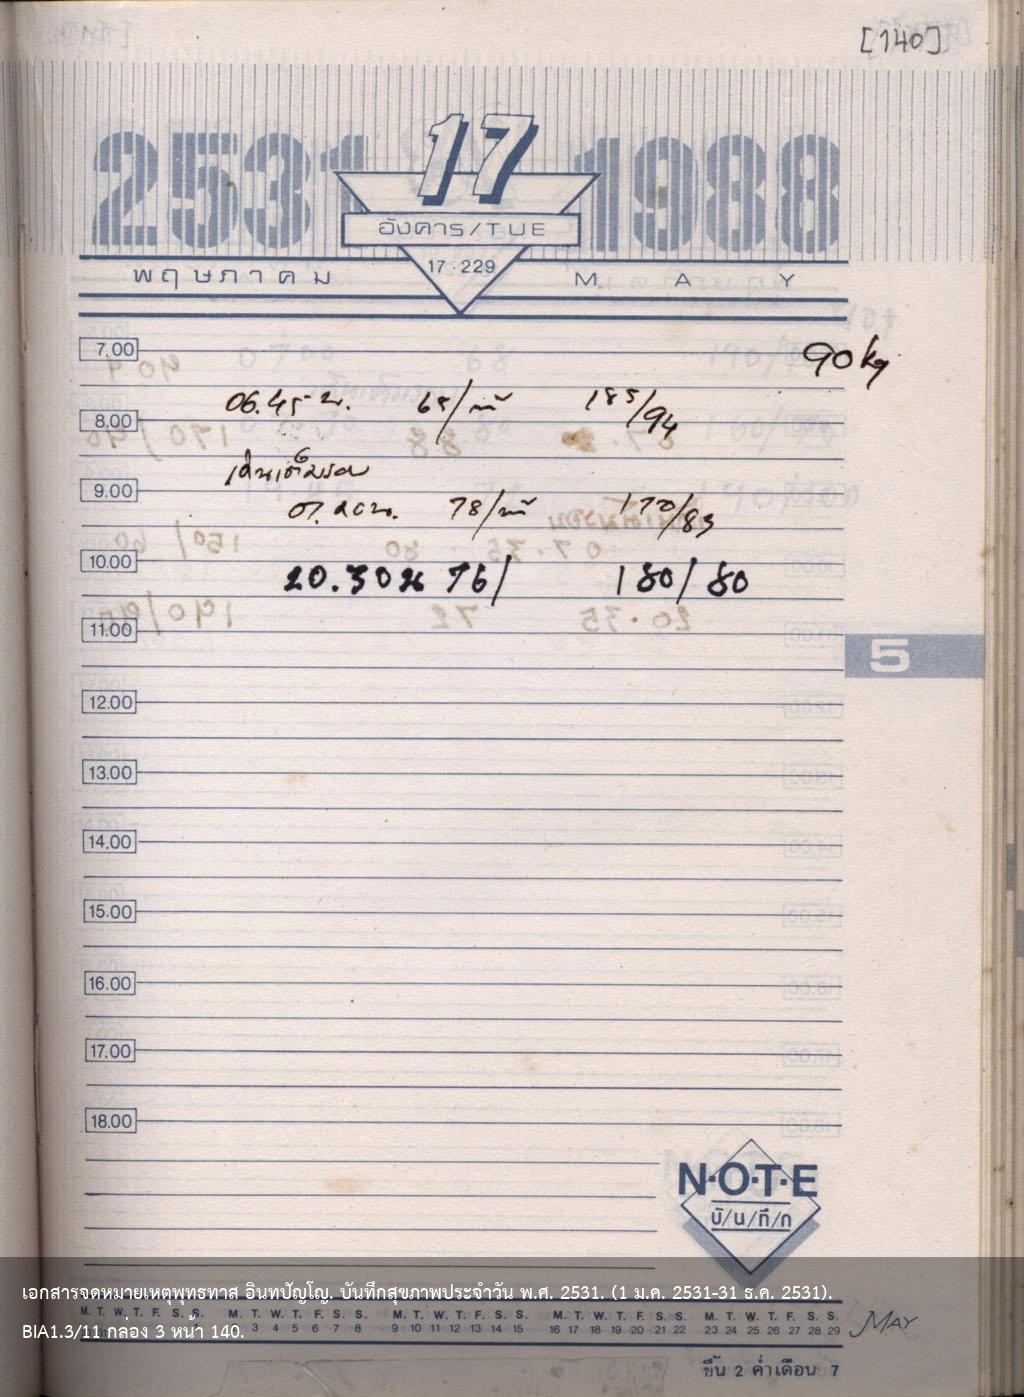 [140]
2531 17 1988
อังคาร/TUE
พฤษภาคม 17·229 MAY
7.00 90 kg
06.45 น. 65/นาที 185/94
8.00
เดินเต็มรอบ
9.00
78/นาที 170/83
10.00
20.30 น 76/ 180/80
11.00
5
12.00
13.00
14.00
15.00
16.00
17.00
18.00
N·O·T·E
บั/น/ทึ/ก
เอกสารจดหมายเหตุพุทธทาส อินทปัญโญ. บันทึกสุขภาพประจำวัน พ.ศ. 2531. (1 ม.ค. 2531-31 ธ.ค. 2531).
M. T. W. T. F. S. S. M. T. W. T. F. S. S. M. T. W. T. F. S. S. M. T. W. T. F. S. S. M. T. W. T. F. S. S.
BIA1.3/11 กล่อง 3 หน้า 140. 3 4 5 6 7 8 9 10 11 12 13 14 15 16 17 18 19 20 21 22 23 24 25 26 27 28 29 MAY
ขึ้น 2 ค่ำเดือน 7